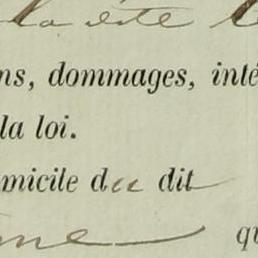 la dite
ns, dommages, inté
la loi.
micile du dit
me qu